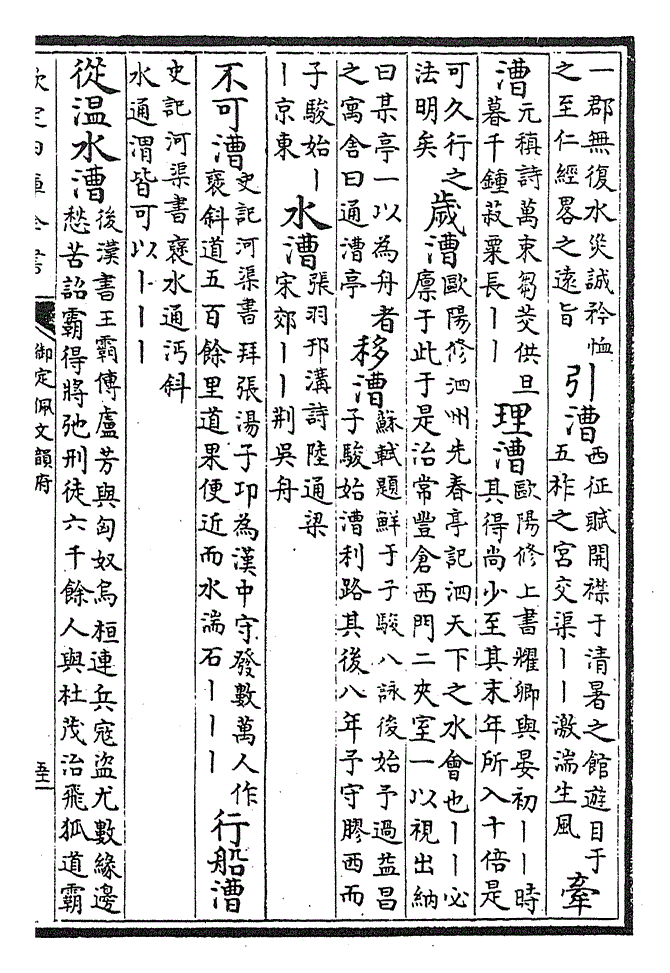 一郡無復水災誠矜恤
之至仁經畧之遠旨
引漕
西征賦開襟于清暑之館遊目于
五柞之宮交渠丨丨激湍生風
牽
漕
元稹詩萬束芻茭供旦
暮千鍾菽粟長丨丨
理漕
歐陽修上書耀卿與晏初丨丨時
其得尚少至其末年所入十倍是
可久行之
法明矣
歲漕
歐陽修泗州先春亭記泗天下之水會也丨丨必
廩于此于是治常豐倉西門二夾室一以視出納
曰某亭一以為舟者
之寓舍曰通漕亭
移漕
蘇軾題鮮于子駿八詠後始予過益昌
子駿始漕利路其後八年予守膠西而
子駿始丨
丨京東
水漕
張羽邗溝詩陸通梁
宋郊丨丨荆吳舟
不可漕
史記河渠書拜張湯子卬為漢中守發數萬人作
褒斜道五百餘里道果便近而水湍石丨丨丨
行船漕
史記河渠書褒水通沔斜
水通渭皆可以丨丨丨
從温水漕
後漢書王霸傳盧芳與匈奴烏桓連兵寇盜尤數緣邊
愁苦詔霸得將弛刑徒六千餘人與杜茂治飛狐道霸
欽定四庫全書
御定佩文韻府